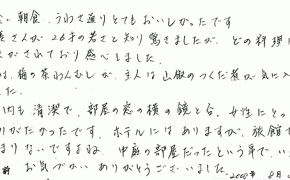 い、朝食、うわさ通りとてもおいしかったです
長さんが26才の若さと知り驚きましたが、どの料理
がされており感心しました。
は、桶の茶わんむしが、主人は山椒のつくだ煮が気に入
た。
内も清潔で、部屋の窓の横の鏡と台、女性にとっ
りがたかったです。ホテルにはありますが、旅館で
まりないですよね。中庭の部屋だったという事で、い
お気づかいありがとうございました。
2008年8月